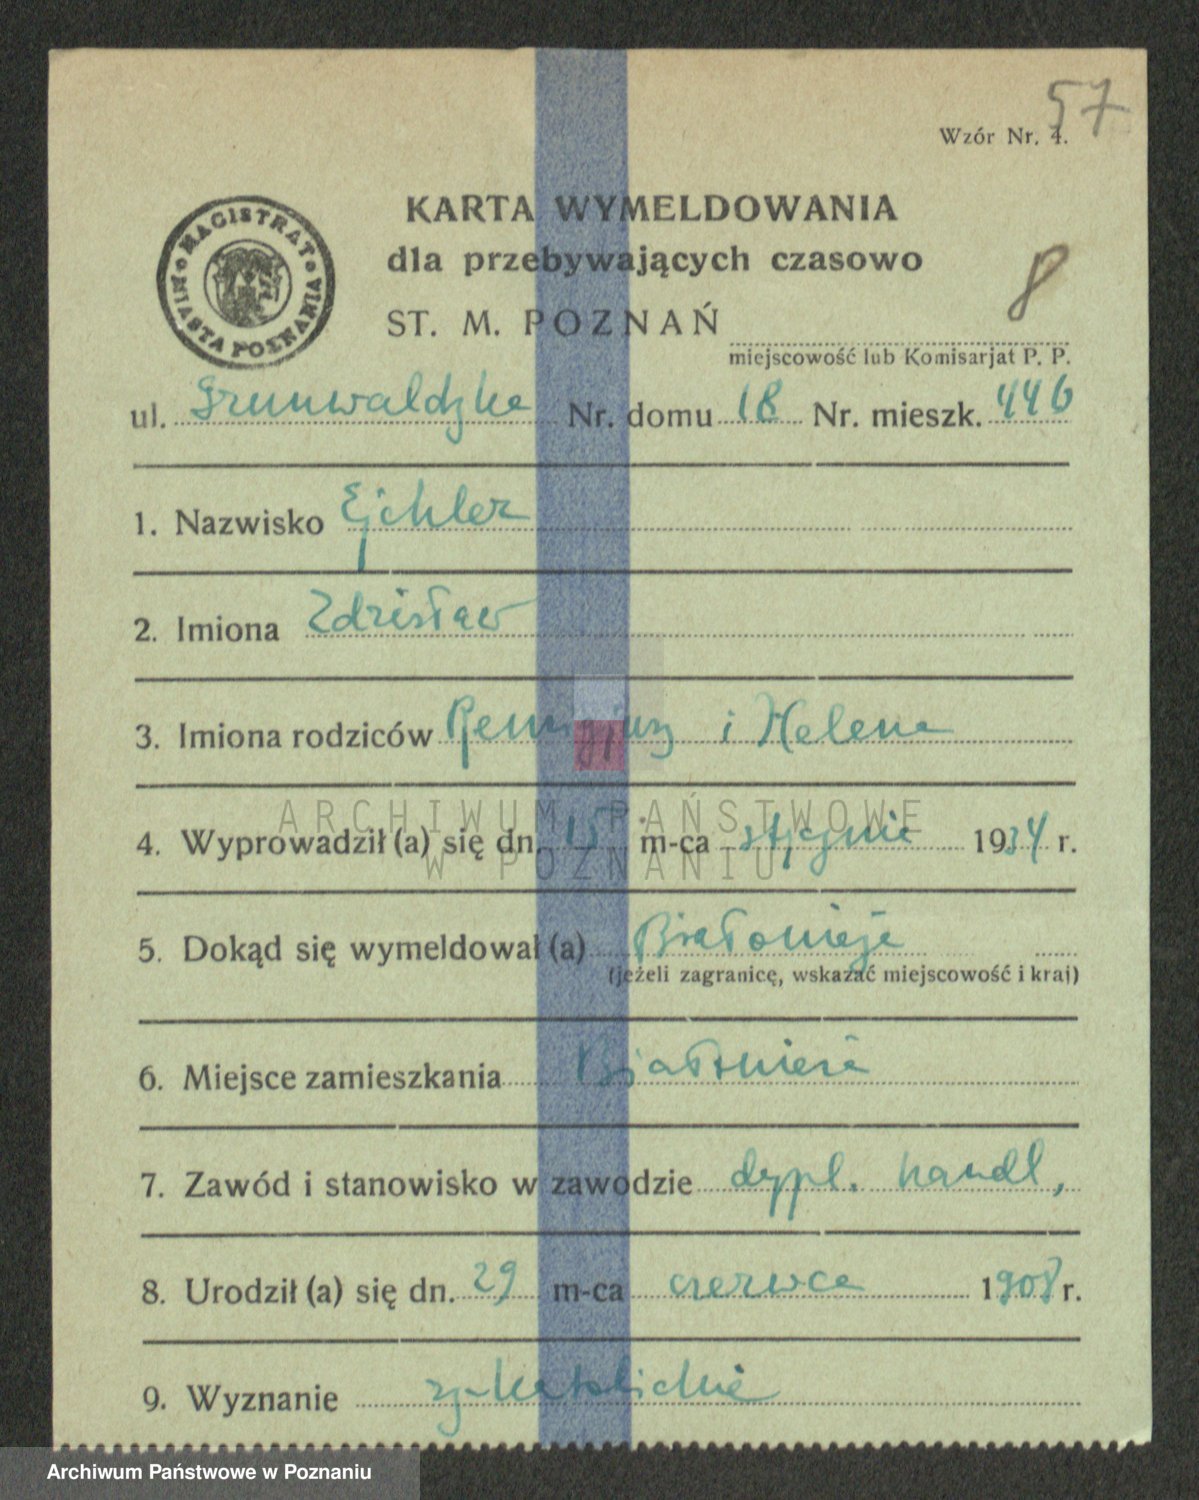 57
Wzór Nr. 4.
MAGISTRAT MIASTA POZNANIA
KARTA WYMELDOWANIA
dla przebywających czasowo
8
ST. M. POZNAŃ
miejscowość lub Komisarjat P. P.
ul. Grunwaldzka Nr. domu 18 Nr. mieszk. 446
1. Nazwisko Ejchler
2. Imiona Zdzisław
3. Imiona rodziców Remigjusz i Helena
ARCHIWUM PAŃSTWOWE
4. Wyprowadził (a) się dn. 15 m-ca stycznia 1934 r.
W POZNANIU
5. Dokąd się wymeldował (a) Białonieże
(jeżeli zagranicę, wskazać miejscowość i kraj)
6. Miejsce zamieszkania
7. Zawód i stanowisko w zawodzie dypl. handl,
8. Urodził (a) się dn. 29 m-ca czerwca 1908 r.
9. Wyznanie rz-katolickie
Archiwum Państwowe w Poznaniu